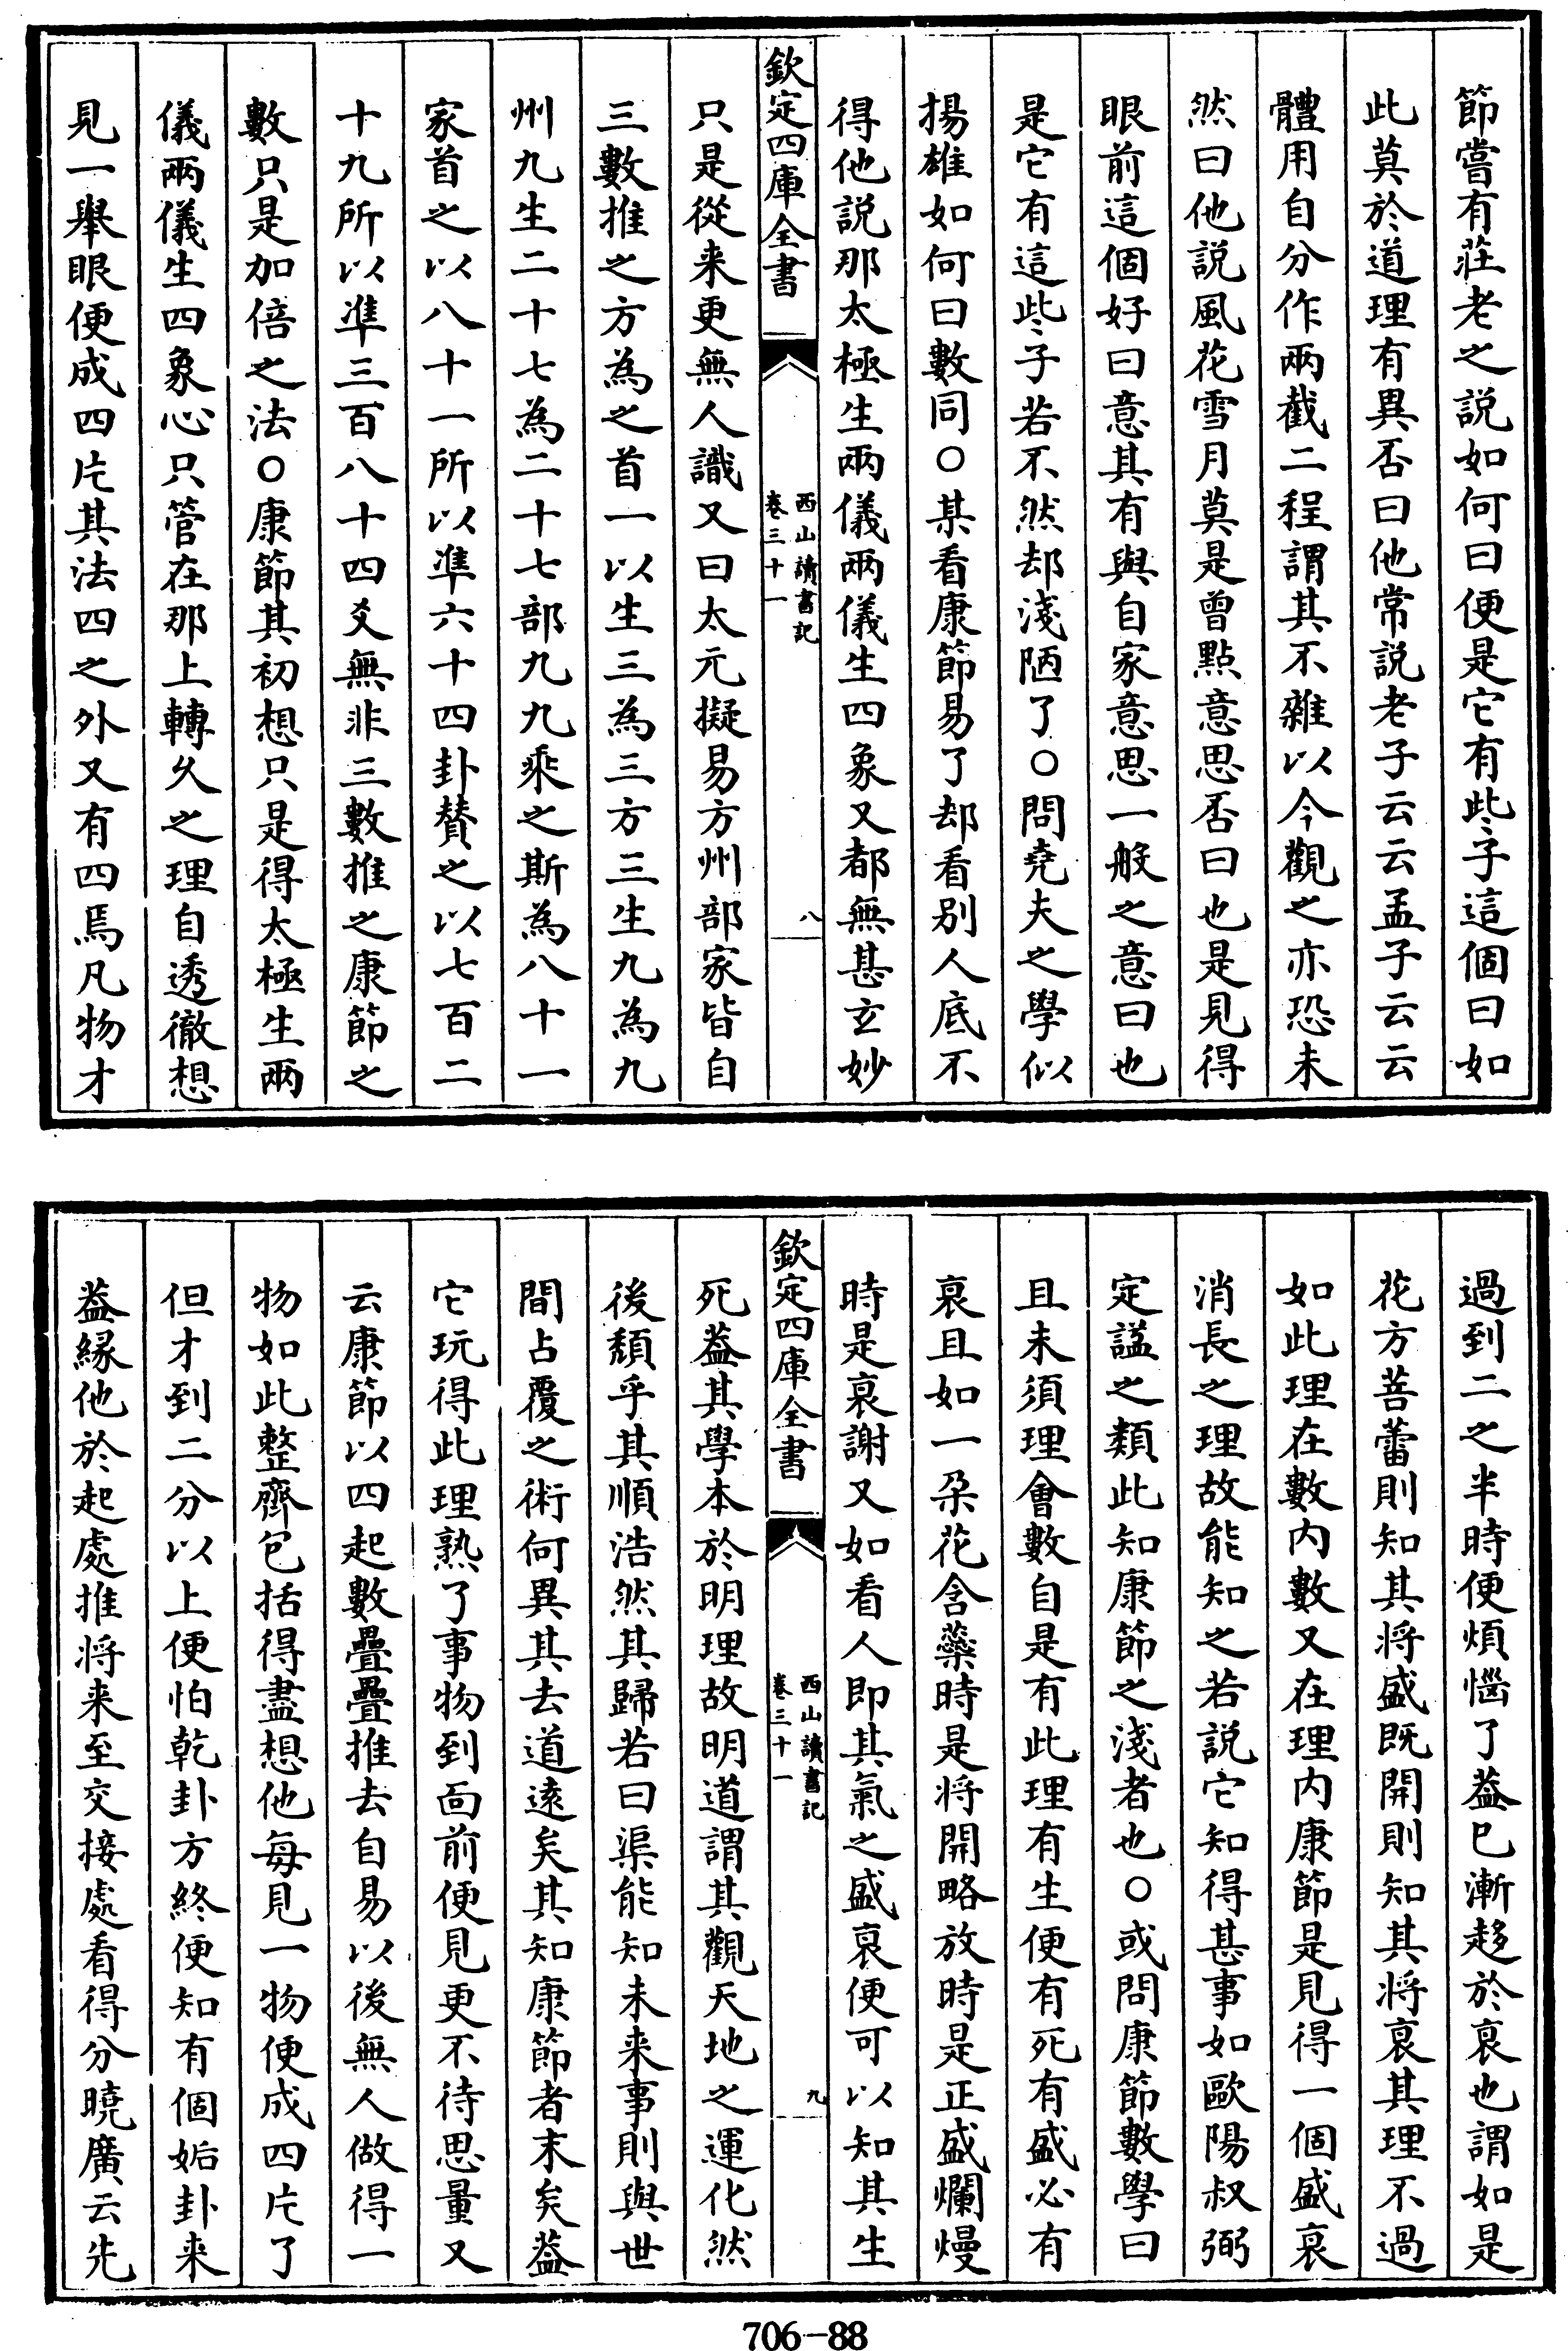 節嘗有莊老之説如何曰便是它有些子這個曰如
此莫於道理有異否曰他常説老子云云孟子云云
體用自分作兩截二程謂其不雜以今觀之亦恐未
然曰他説風花雪月莫是曾點意思否曰也是見得
眼前這個好曰意其有與自家意思一般之意曰也
是它有這些子若不然却淺陋了○問堯夫之學似
揚雄如何曰數同○某看康節易了却看别人底不
得他説那太極生兩儀兩儀生四象又都無甚玄妙
欽定四庫全書
西山讀書記
卷三十一
八
只是從来更無人識又曰太元擬易方州部家皆自
三數推之方為之首一以生三為三方三生九為九
州九生二十七為二十七部九九乘之斯為八十一
家首之以八十一所以凖六十四卦贊之以七百二
十九所以凖三百八十四爻無非三數推之康節之
數只是加倍之法○康節其初想只是得太極生兩
儀兩儀生四象心只管在那上轉久之理自透徹想
見一舉眼便成四片其法四之外又有四焉凡物才
過到二之半時便煩惱了葢已漸趍於衰也謂如是
花方菩蕾則知其将盛既開則知其将衰其理不過
如此理在數内數又在理内康節是見得一個盛衰
消長之理故能知之若説它知得甚事如歐陽叔弼
定諡之類此知康節之淺者也○或問康節數學曰
且未須理會數自是有此理有生便有死有盛必有
衰且如一朶花含蘂時是将開略放時是正盛爛熳
時是衰謝又如看人即其氣之盛衰便可以知其生
欽定四庫全書
西山讀書記
卷三十一
九
死葢其學本於明理故明道謂其觀天地之運化然
後頹乎其順浩然其歸若曰渠能知未来事則與世
間占覆之術何異其去道遠矣其知康節者末矣葢
它玩得此理熟了事物到面前便見更不待思量又
云康節以四起數疊疊推去自易以後無人做得一
物如此整齊包括得盡想他每見一物便成四片了
但才到二分以上便怕乾卦方終便知有個姤卦来
葢縁他於起處推将来至交接處看得分曉廣云先
706-88